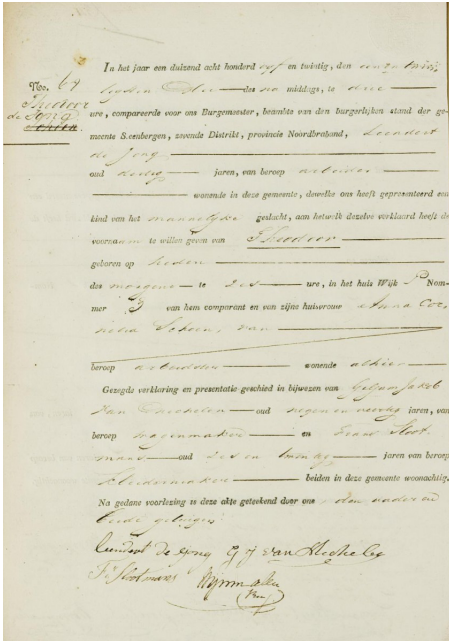 In het jaar een duizend acht honderd elf en twintig, den
des na middags, te drie
No. 67
ure, compareerde voor ons Burgemeester, beambte van den burgerlijken stand der ge-
Theodoor
de Jong
meente Steenbergen, zevende Distrikt, provincie Noordbraband, Leendert
de Jong
oud dertig jaren, van beroep arbeider
wonende in deze gemeente, dewelke ons heeft gepresenteerd een
kind van het mannelijke geslacht, aan hetwelk dezelve verklaard heeft de
voornaam te willen geven van Theodoor
geboren op heden
des morgens te zes ure, in het huis Wijk Nom-
mer 3 van hem comparant en van zijne huisvrouw Anna Cor,
nelia van
beroep arbeidster wonende alhier
Gezegde verklaring en presentatie geschied in bijwezen van Jakob
van Mechelen oud negen en veertig jaren, van
beroep wagenmaker en Frans Sloot
mans oud zes en twintig jaren van beroep
kleedermaker beiden in deze gemeente woonachtig.
Na gedane voorlezing is deze akte geteekend door ons den vader en
beide getuigen
Leendert de Jong G J van Mechelen
Fs Slootmans